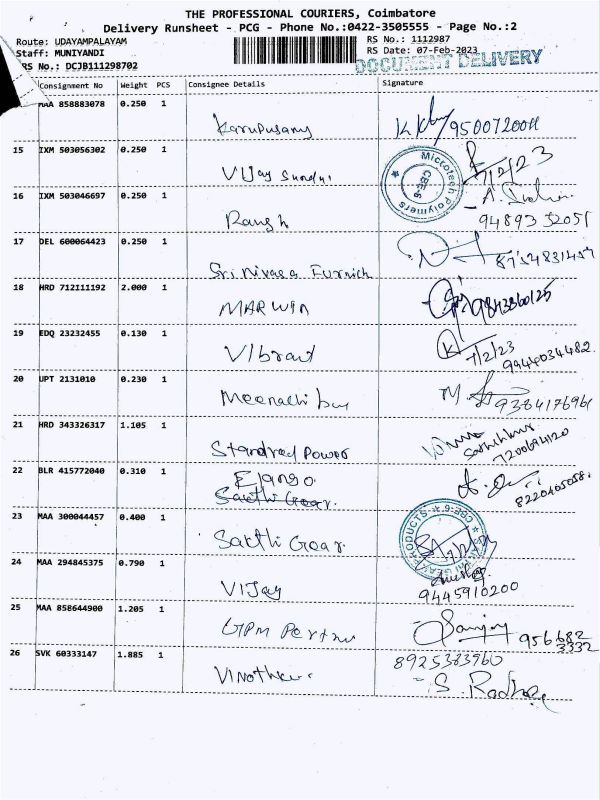 THE PROFESSIONAL COURIERS, Coimbatore
Delivery Runsheet - PCG - Phone No.:0422-3505555 - Page No.:2
Route: UDAYAMPALAYAM RS No.: 1112987
Staff: MUNIYANDI RS Date: 07-Feb-2023
RS No.: DCJB111298702 DOCUMENT DELIVERY
Consignment No Weight PCS Consignee Details Signature
MAA 858883078 0.250 1
Karupusamy 9500720011
15 IXM 503056302 0.250 1
Vijay Sundar 7/2/23
Microtech Polymers CBE-6
16 IXM 503046697 0.250 1
9489352051
17 DEL 600064423 0.250 1
Srinivasa Furnich 8754831457
18 HRD 712111192 2.000 1
MARWIN 9843360125
19 EDQ 23232455 0.130 1
Vibrant 7/2/23
9944034482.
20 UPT 2131010 0.230 1
Meenachi 9384176961
21 HRD 343326317 1.105 1
Standred Power 7200694120
22 BLR 415772040 0.310 1
Elango.
Sakthi Gear. 8220405058.
23 MAA 300044457 0.400 1
Sakthi Gear
24 MAA 294845375 0.790 1
Vijay 9445910200
25 MAA 858644900 1.205 1
GPM Sanjay 956682
3332
26 SVK 60333147 1.885 1
8925383960
S. Radha